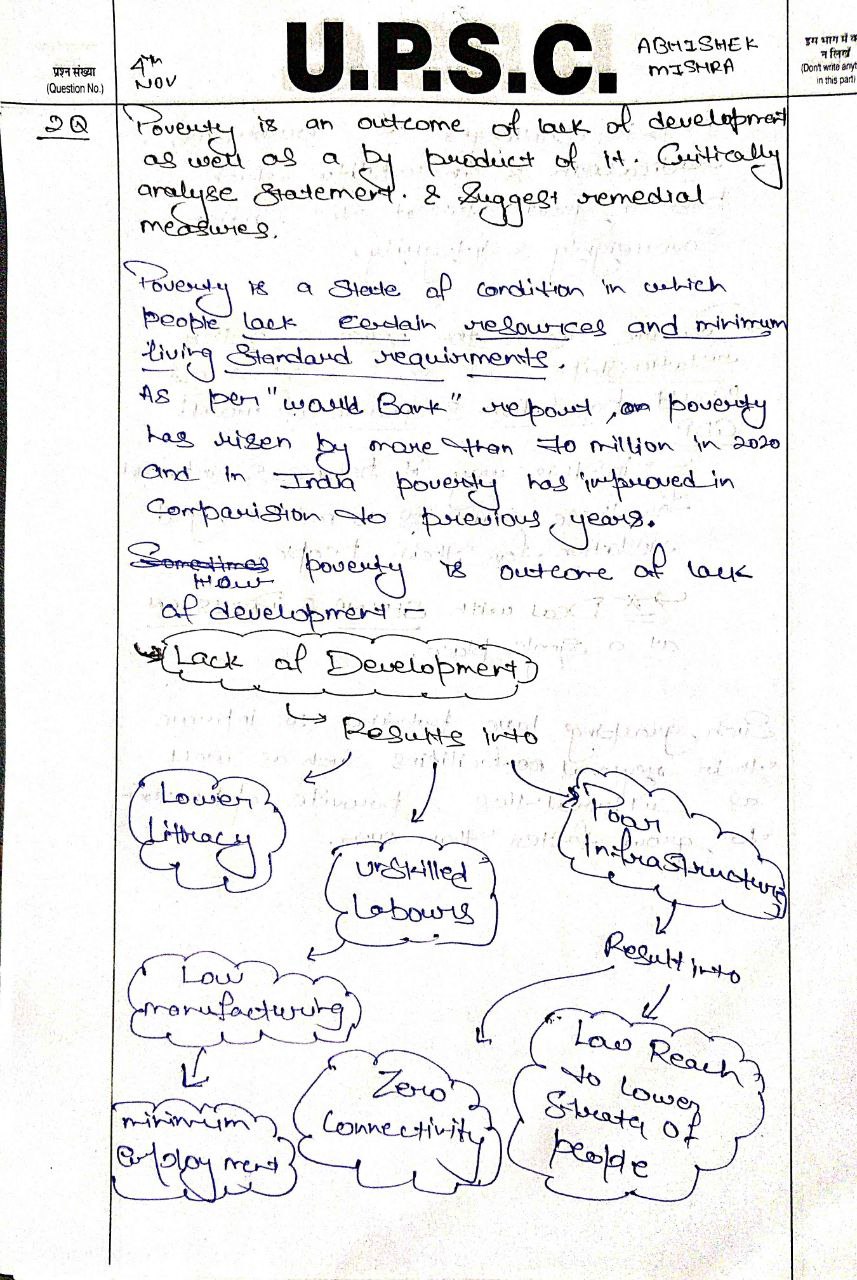 U.P.S.C.
ABHISHEK
MISHRA
4th
NOV
प्रश्न संख्या
(Question No.)
इस भाग में क
न लिखें
(Don't write anyt
in this part)
2Q
Poverty is an outcome of lack of development
as well as a by product of it. Critically
analyse statement. & Suggest remedial
measures.
Poverty is a state of condition in which
people lack certain resources and minimum
living standard requirments.
As per "world Bank" report, poverty
has risen by more than 70 million in 2020
and in India poverty has improved in
Comparision to previous years.
Sometimes How poverty is outcome of lack
of development –
Lack of Development
Results into
Lower
Litracy
unskilled
Labours
Poor
infrastructure
Result into
Low
manufacturing
minimum
employment
Zero
Connectivity
Low Reach
to lower
strata of
people